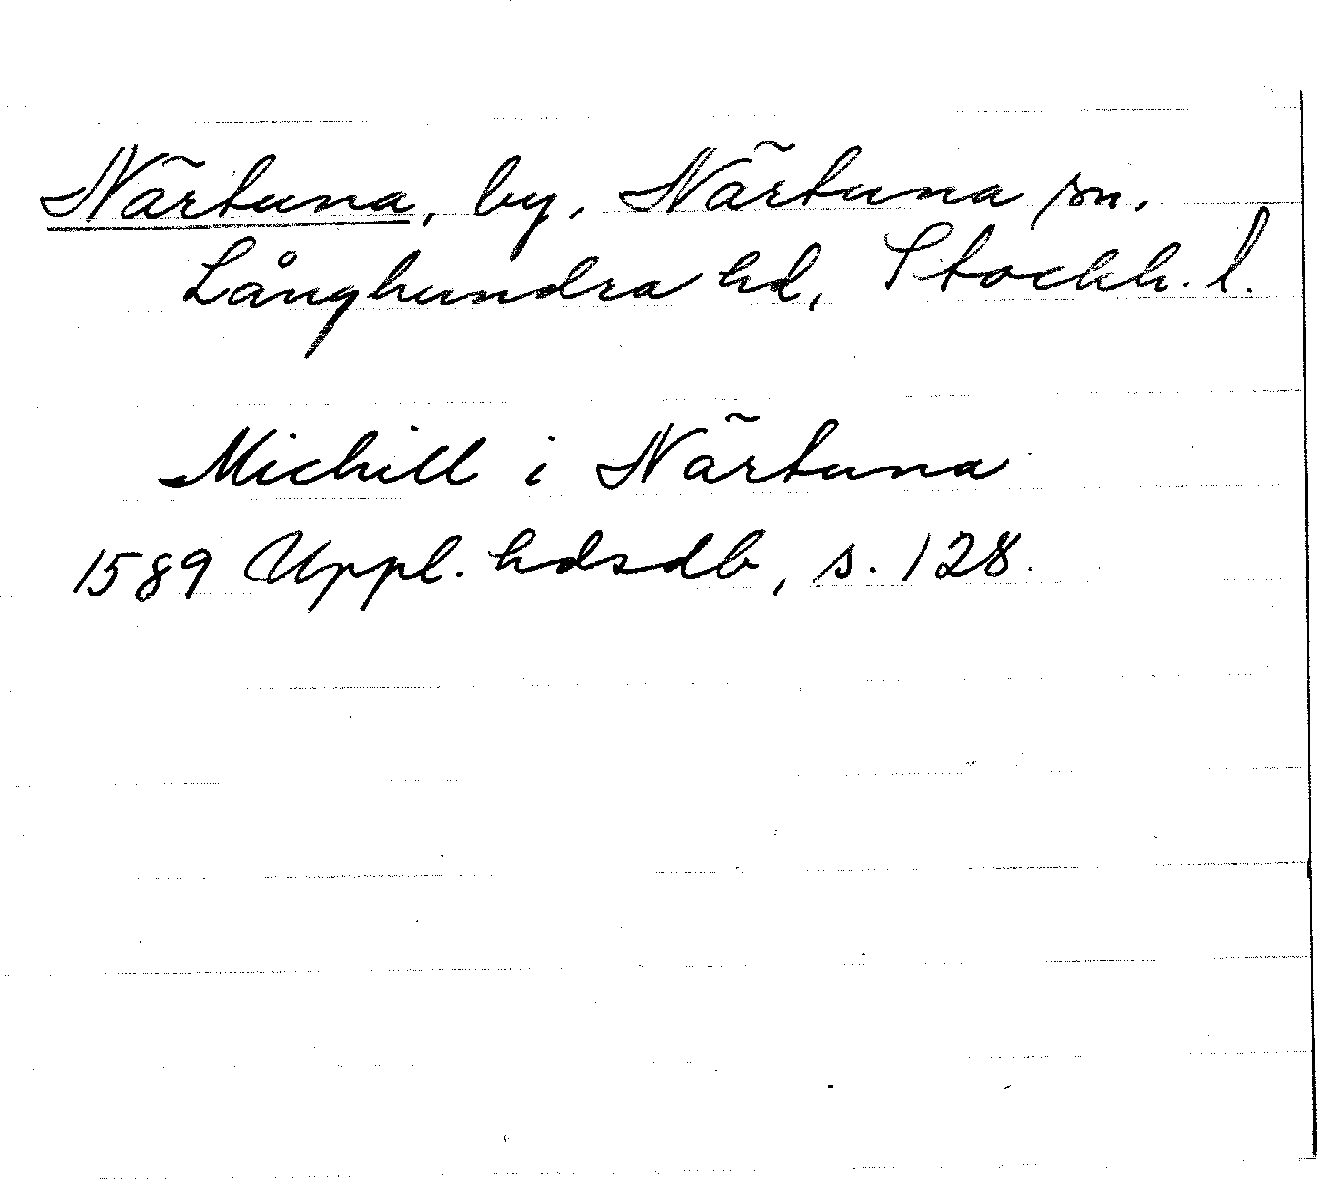 Närtuna, by, Närtuna sn.
Långhundra hd, Stockh. l.
Michill i Närtuna
1589 Uppl. hdsdb, s. 128.